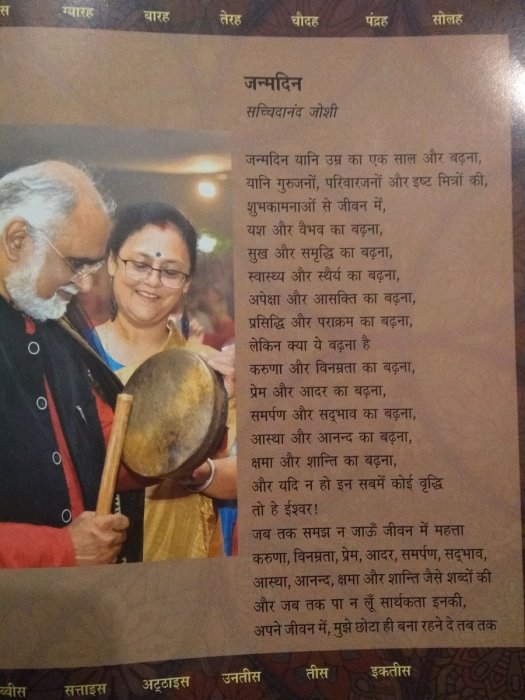 ग्यारह बारह तेरह चौदह पंद्रह सोलह
जन्मदिन
सच्चिदानंद जोशी
जन्मदिन यानि उम्र का एक साल और बढ़ना,
यानि गुरुजनों, परिवारजनों और इष्ट मित्रों की,
शुभकामनाओं से जीवन में,
यश और वैभव का बढ़ना,
सुख और समृद्धि का बढ़ना,
स्वास्थ्य और स्थैर्य का बढ़ना,
अपेक्षा और आसक्ति का बढ़ना,
प्रसिद्धि और पराक्रम का बढ़ना,
लेकिन क्या ये बढ़ना है
करुणा और विनम्रता का बढ़ना,
प्रेम और आदर का बढ़ना,
समर्पण और सद्‌भाव का बढ़ना,
आस्था और आनन्द का बढ़ना,
क्षमा और शान्ति का बढ़ना,
और यदि न हो इन सबमें कोई वृद्धि
तो हे ईश्वर!
जब तक समझ न जाऊँ जीवन में महत्ता
करुणा, विनम्रता, प्रेम, आदर, समर्पण, सद्‌भाव,
आस्था, आनन्द, क्षमा और शान्ति जैसे शब्दों की
और जब तक पा न लूँ सार्थकता इनकी,
अपने जीवन में, मुझे छोटा ही बना रहने दे तब तक
सत्ताइस अट्ठाइस उनतीस तीस इकतीस